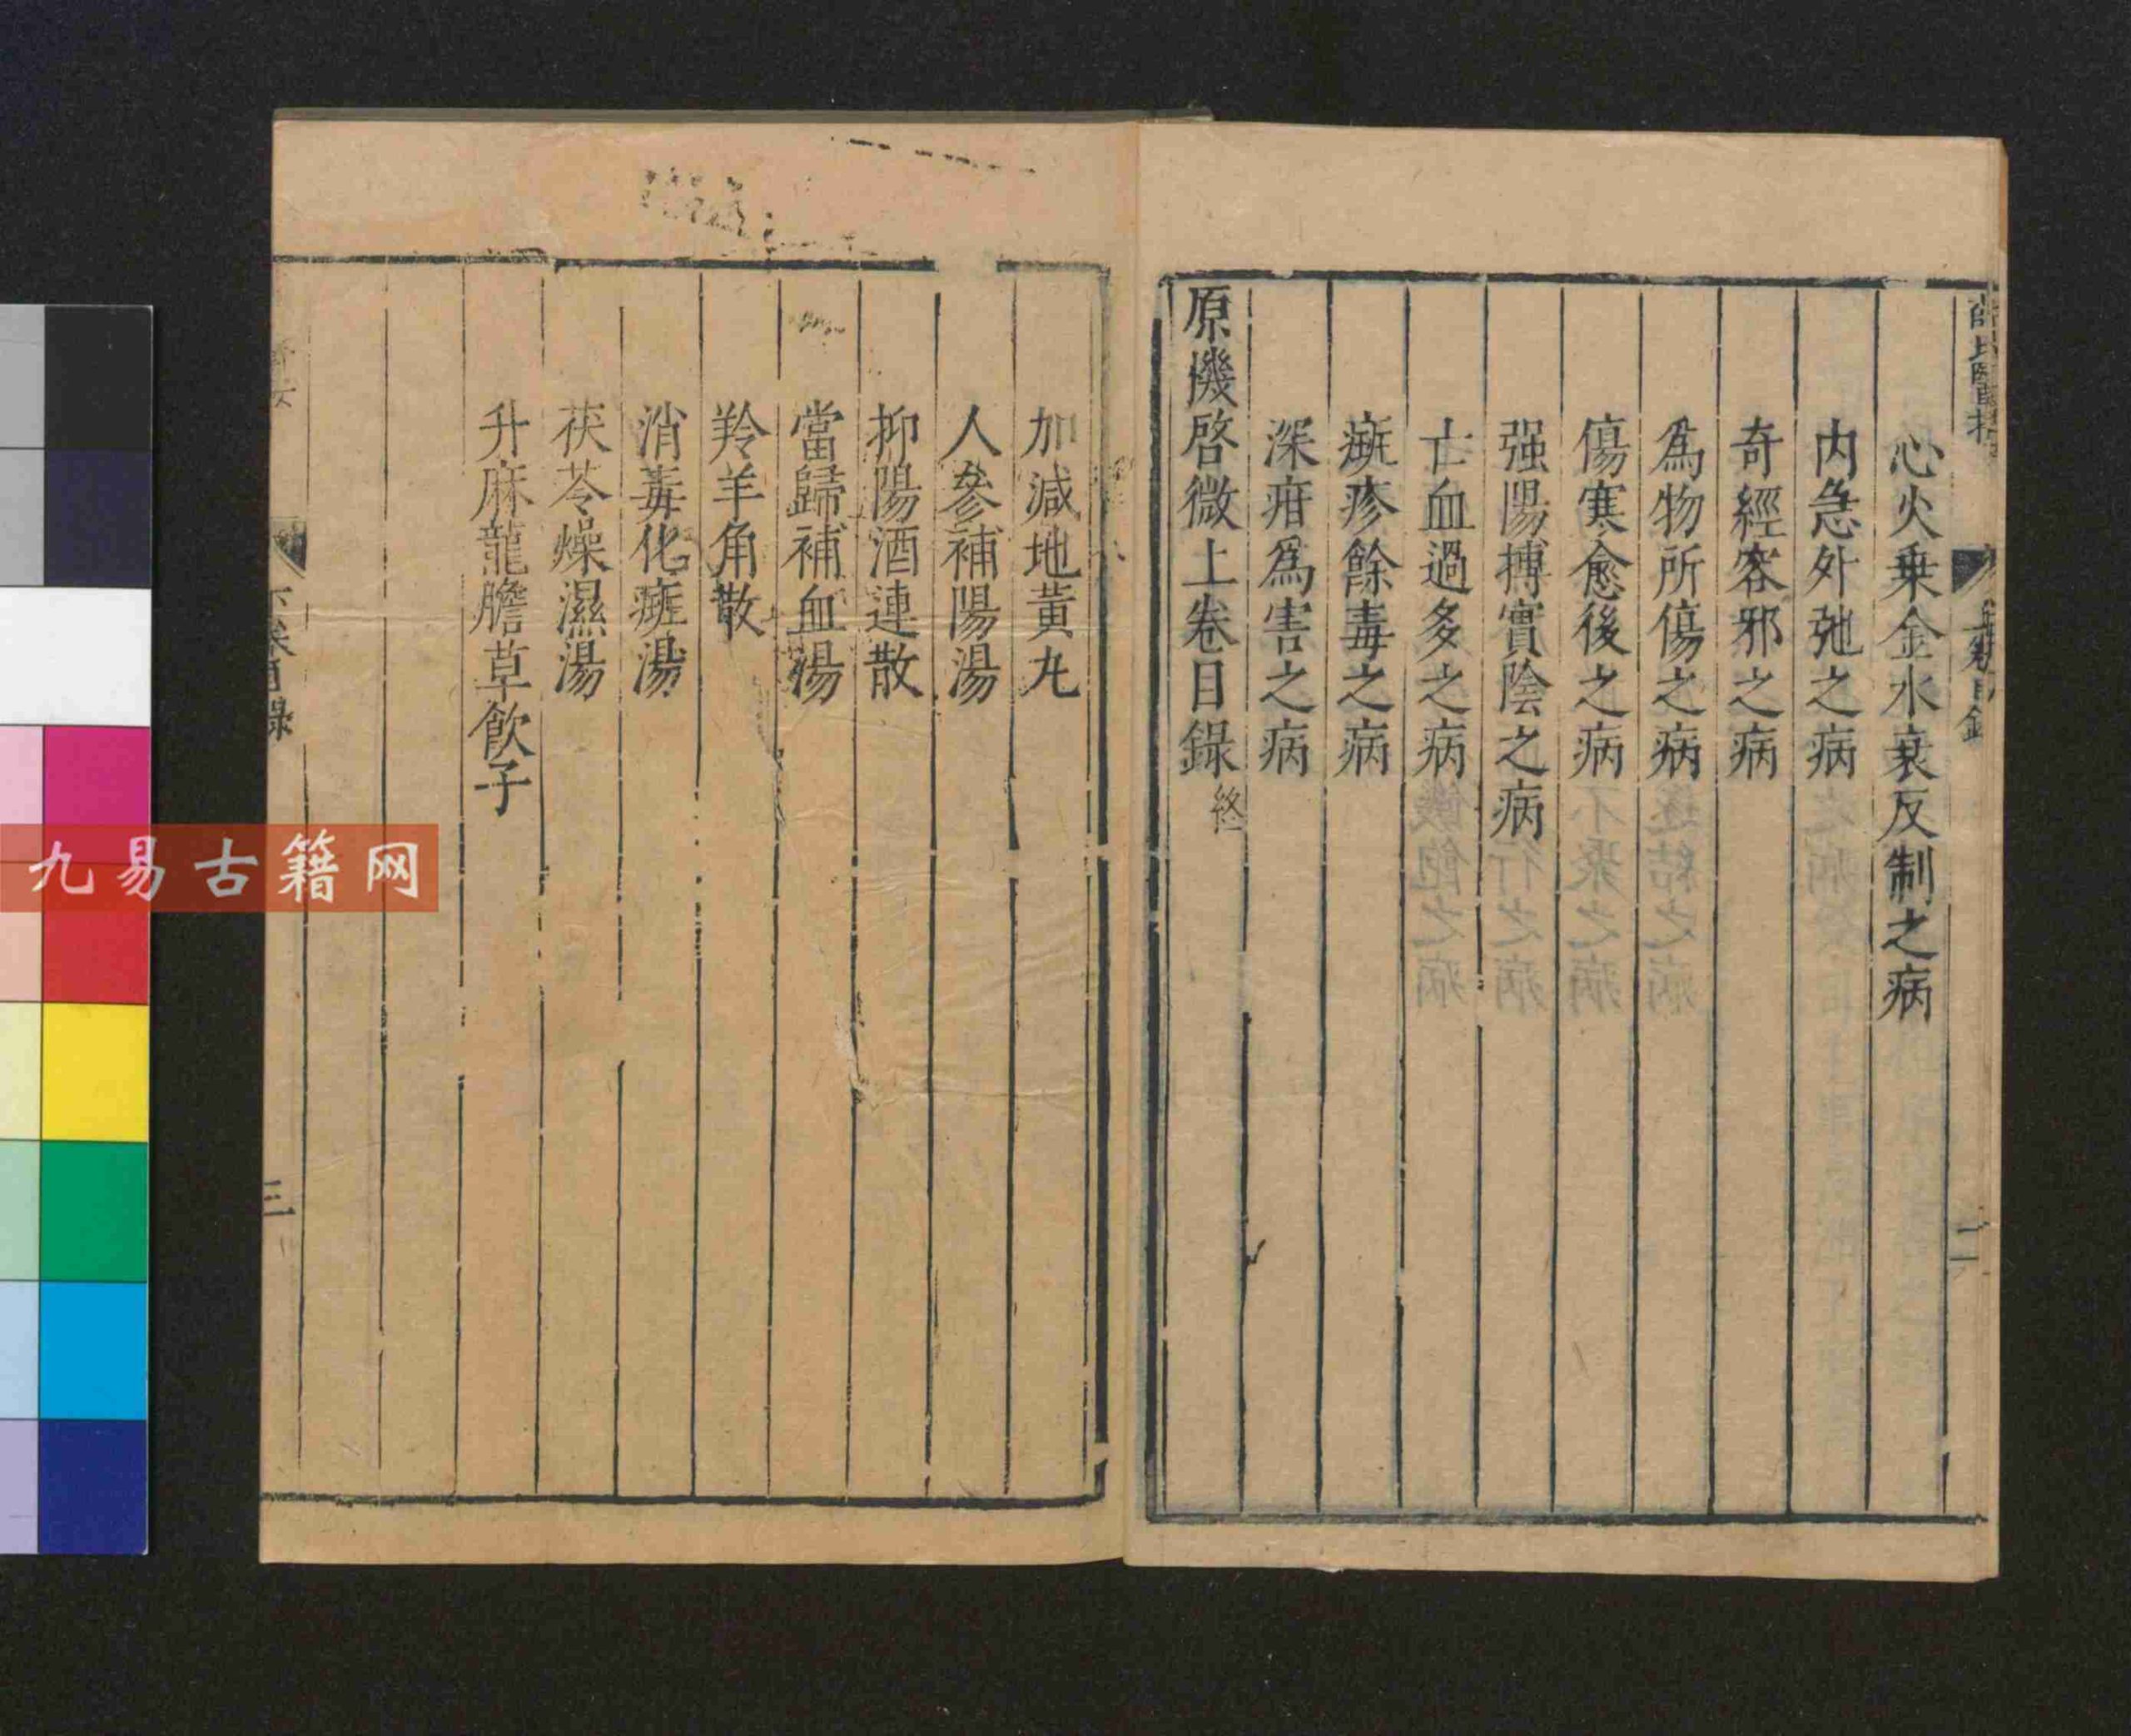 心火乗金水衰反制之病
内急外弛之病
奇經客邪之病
為物所傷之病
傷寒愈後之病
强陽搏實陰之病
亡血過多之病
癍疹餘毒之病
深疳為害之病
原機啓微上卷目録終
二
加減地黄丸
人參補陽湯
抑陽酒連散
當歸補血湯
羚羊角散
消毒化癍湯
茯苓燥濕湯
升麻龍膽草飲子
三
九易古籍网